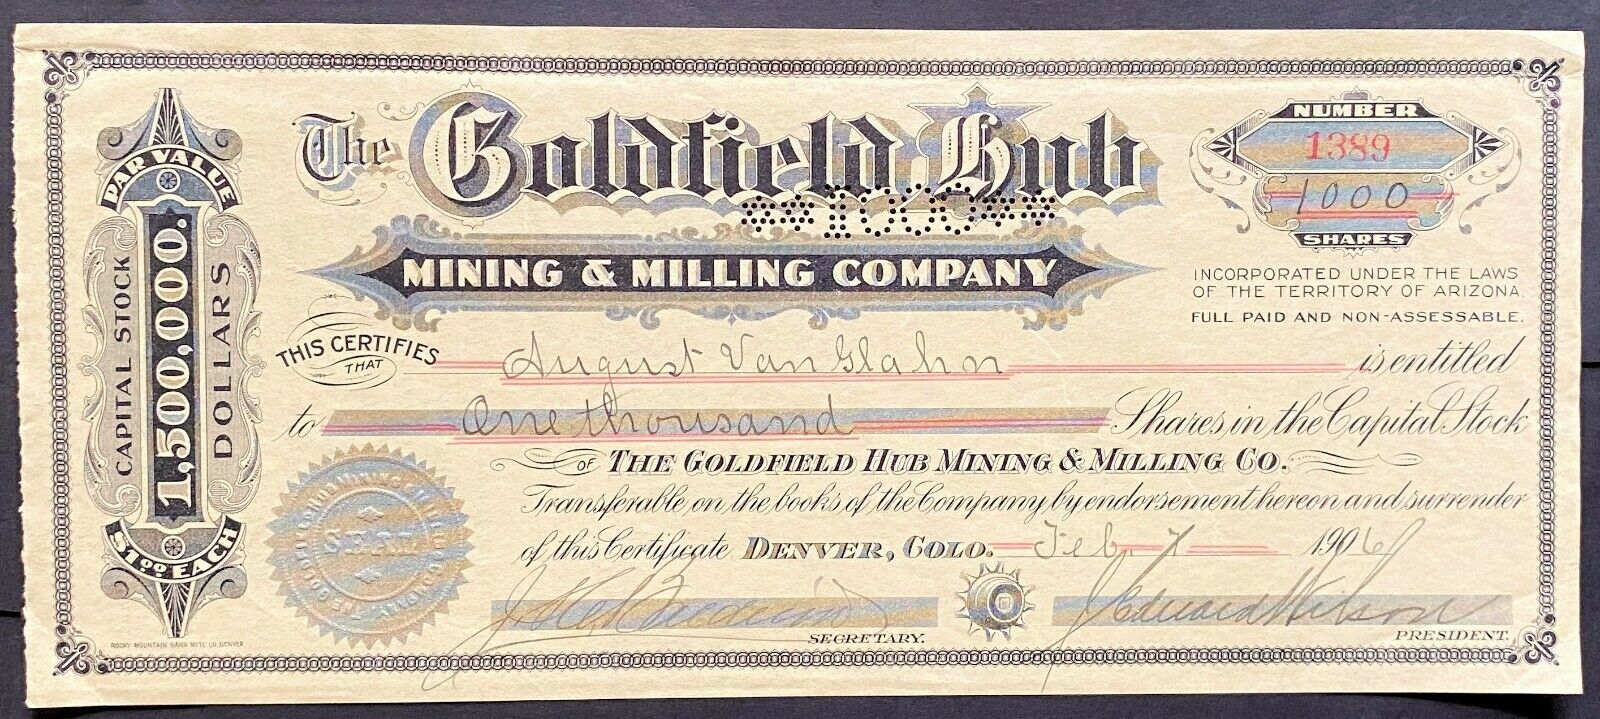 The Goldfield Hub
1000
MINING & MILLING COMPANY
NUMBER
1389
1000
SHARES
INCORPORATED UNDER THE LAWS
OF THE TERRITORY OF ARIZONA.
FULL PAID AND NON-ASSESSABLE.
PAR VALUE
CAPITAL STOCK
1,500,000.
DOLLARS
$1.00 EACH
THIS CERTIFIES
THAT August Van Glahn is entitled
to One thousand Shares in the Capital Stock
OF THE GOLDFIELD HUB MINING & MILLING CO.
Transferable on the books of the Company by endorsement hereon and surrender
of this Certificate DENVER, COLO. Feb. 7 1906
SEAL
J Edward Wilson
SECRETARY.
PRESIDENT.
ROCKY MOUNTAIN BANK NOTE CO. DENVER